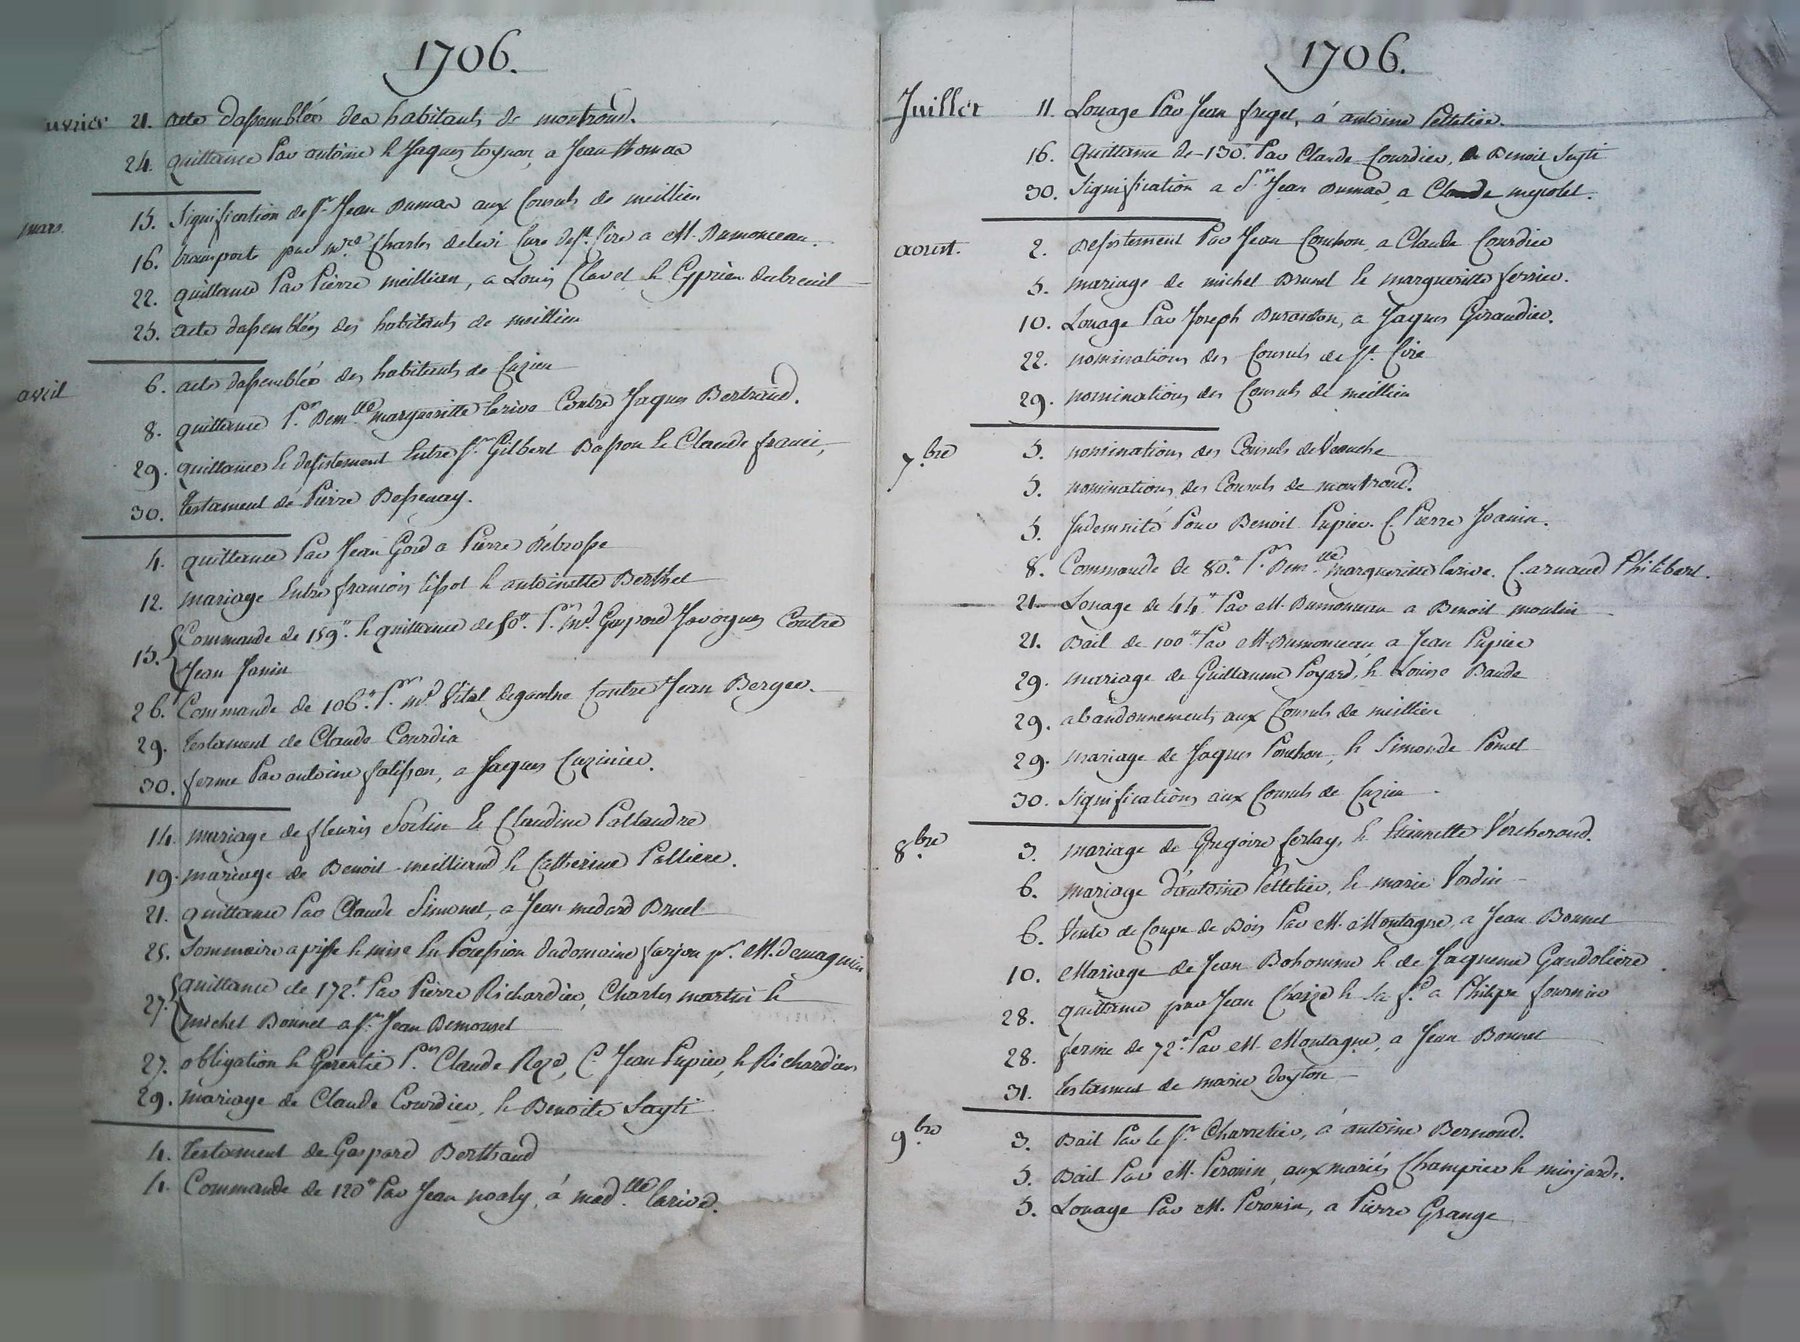 1706.
21. acte dassemblée des habitants de montrond.
24. quittance Par antoine & Jaques toynon, a Jean thomas
mars. 15. Signification de sr. Jean Dumas aux Consuls de meillieu
16. transport par mre. Charles delevi Cure de st. Cire a M. Dumonceau.
22. quittance Par Pierre meillieu, a Louis Clavel & Cyprien dubreuil
25. acte dassemblée des habitants de meillieu
avril 6. acte dassemblée des habitants de Cuzieu
8. quittance Pr. Demlle. margueritte larive Contre Jaques Bertrand.
29. quittance & desistement Entre sr. Gilbert Basson & Claude franci,
30. testament de Pierre Bessenay.
4. quittance Par Jean Gord a Pierre Débrosse
12. mariage Entre francois tissot & antoinette Berthet
15. Commande de 159tt. & quittance de 50tt. Pr. md. Gaspard Javogues Contre
Jean Janin
26. Commande de 106tt. Pr. md. Vital Contre Jean Berger.
29. testament de Claude Courdia
30. ferme Par antoine falisson, a Jaques Cuzinier.
14. mariage de fleuris Soclin & Claudine Pallandre
19. mariage de Benoit meilliand & Catherine Palliere.
21. quittance Par Claude Simonet, a Jean medard Bruel
25. Sommaire aprisse & mise En Possession du domaine farjon pr. M. demagnieu
27. quittance de 172tt. Par Pierre Richardier, Charles martin &
michel Bonnet a sr. Jean Demouset
27. obligation & Garentie Pr. Claude Roze, C. Jean Pupier, & Richardier
29. mariage de Claude Courdier, & Benoite Sayti
4. testament de Gaspard Berthaud
4. Commande de 120tt Par Jean noaly, á madlle. larive.
1706.
Juillet 11. Louage Par Jean freget, á antoine Pelletier.
16. Quittance de 130tt. Par Claude Courdier, a Benoit Sayti
30. Signification a Sr. Jean Dumas, a Claude meyiolet.
aoust. 2. desistement Par Jean Couchon, a Claude Courdier
5. mariage de michel Brunel & margueritte ferrier.
10. Louage Par Joseph Durandon, a Jaques Giraudier.
22. nominations des Consuls de st. Cire
29. nominations des Consuls de meillieu
7.bre 5. nominations des Consuls de Veauche
5. nominations des Consuls de montrond.
5. Indemnité Pour Benoit Pupier C. Pierre Joanin.
8. Commande de 80tt. Pr. Demlle. margueritte larive. C. arnaud Philibert.
21. Louage de 44tt Par M. Dumonceau a Benoit moulin
21. Bail de 100tt Par M. Dumonceau a Jean Pupier
29. mariage de Guillaume Poyard, & Louise Baude
29. abandonnements aux Consuls de meillieu
29. mariage de Jaques Ponchon, & Simonde Ponct
30. Significations aux Consuls de Cuzieu.
8.bre 3. mariage de Gregoire ferlay, & Etiennette Vercherand.
6. mariage d'antoine Pelletier, & marie Verdier
6. Vente de Coupe de Bois Par M. Montagne, a Jean Bonnet
10. Mariage de Jean Bohomme & de Jaqueme Gandoliere
28. quittance par Jean Chaize & sa fe. a Philipe fournier
28. ferme de 72tt. Par M. Montagne, a Jean Bonnet
31. testament de marie doyton
9.bre 3. Bail Par le sr. Charretier, á antoine Bernoud.
5. Bail Par M. Peronin, aux mariés Champier & minjard.
5. Louage Par M. Peronin, a Pierre Grange